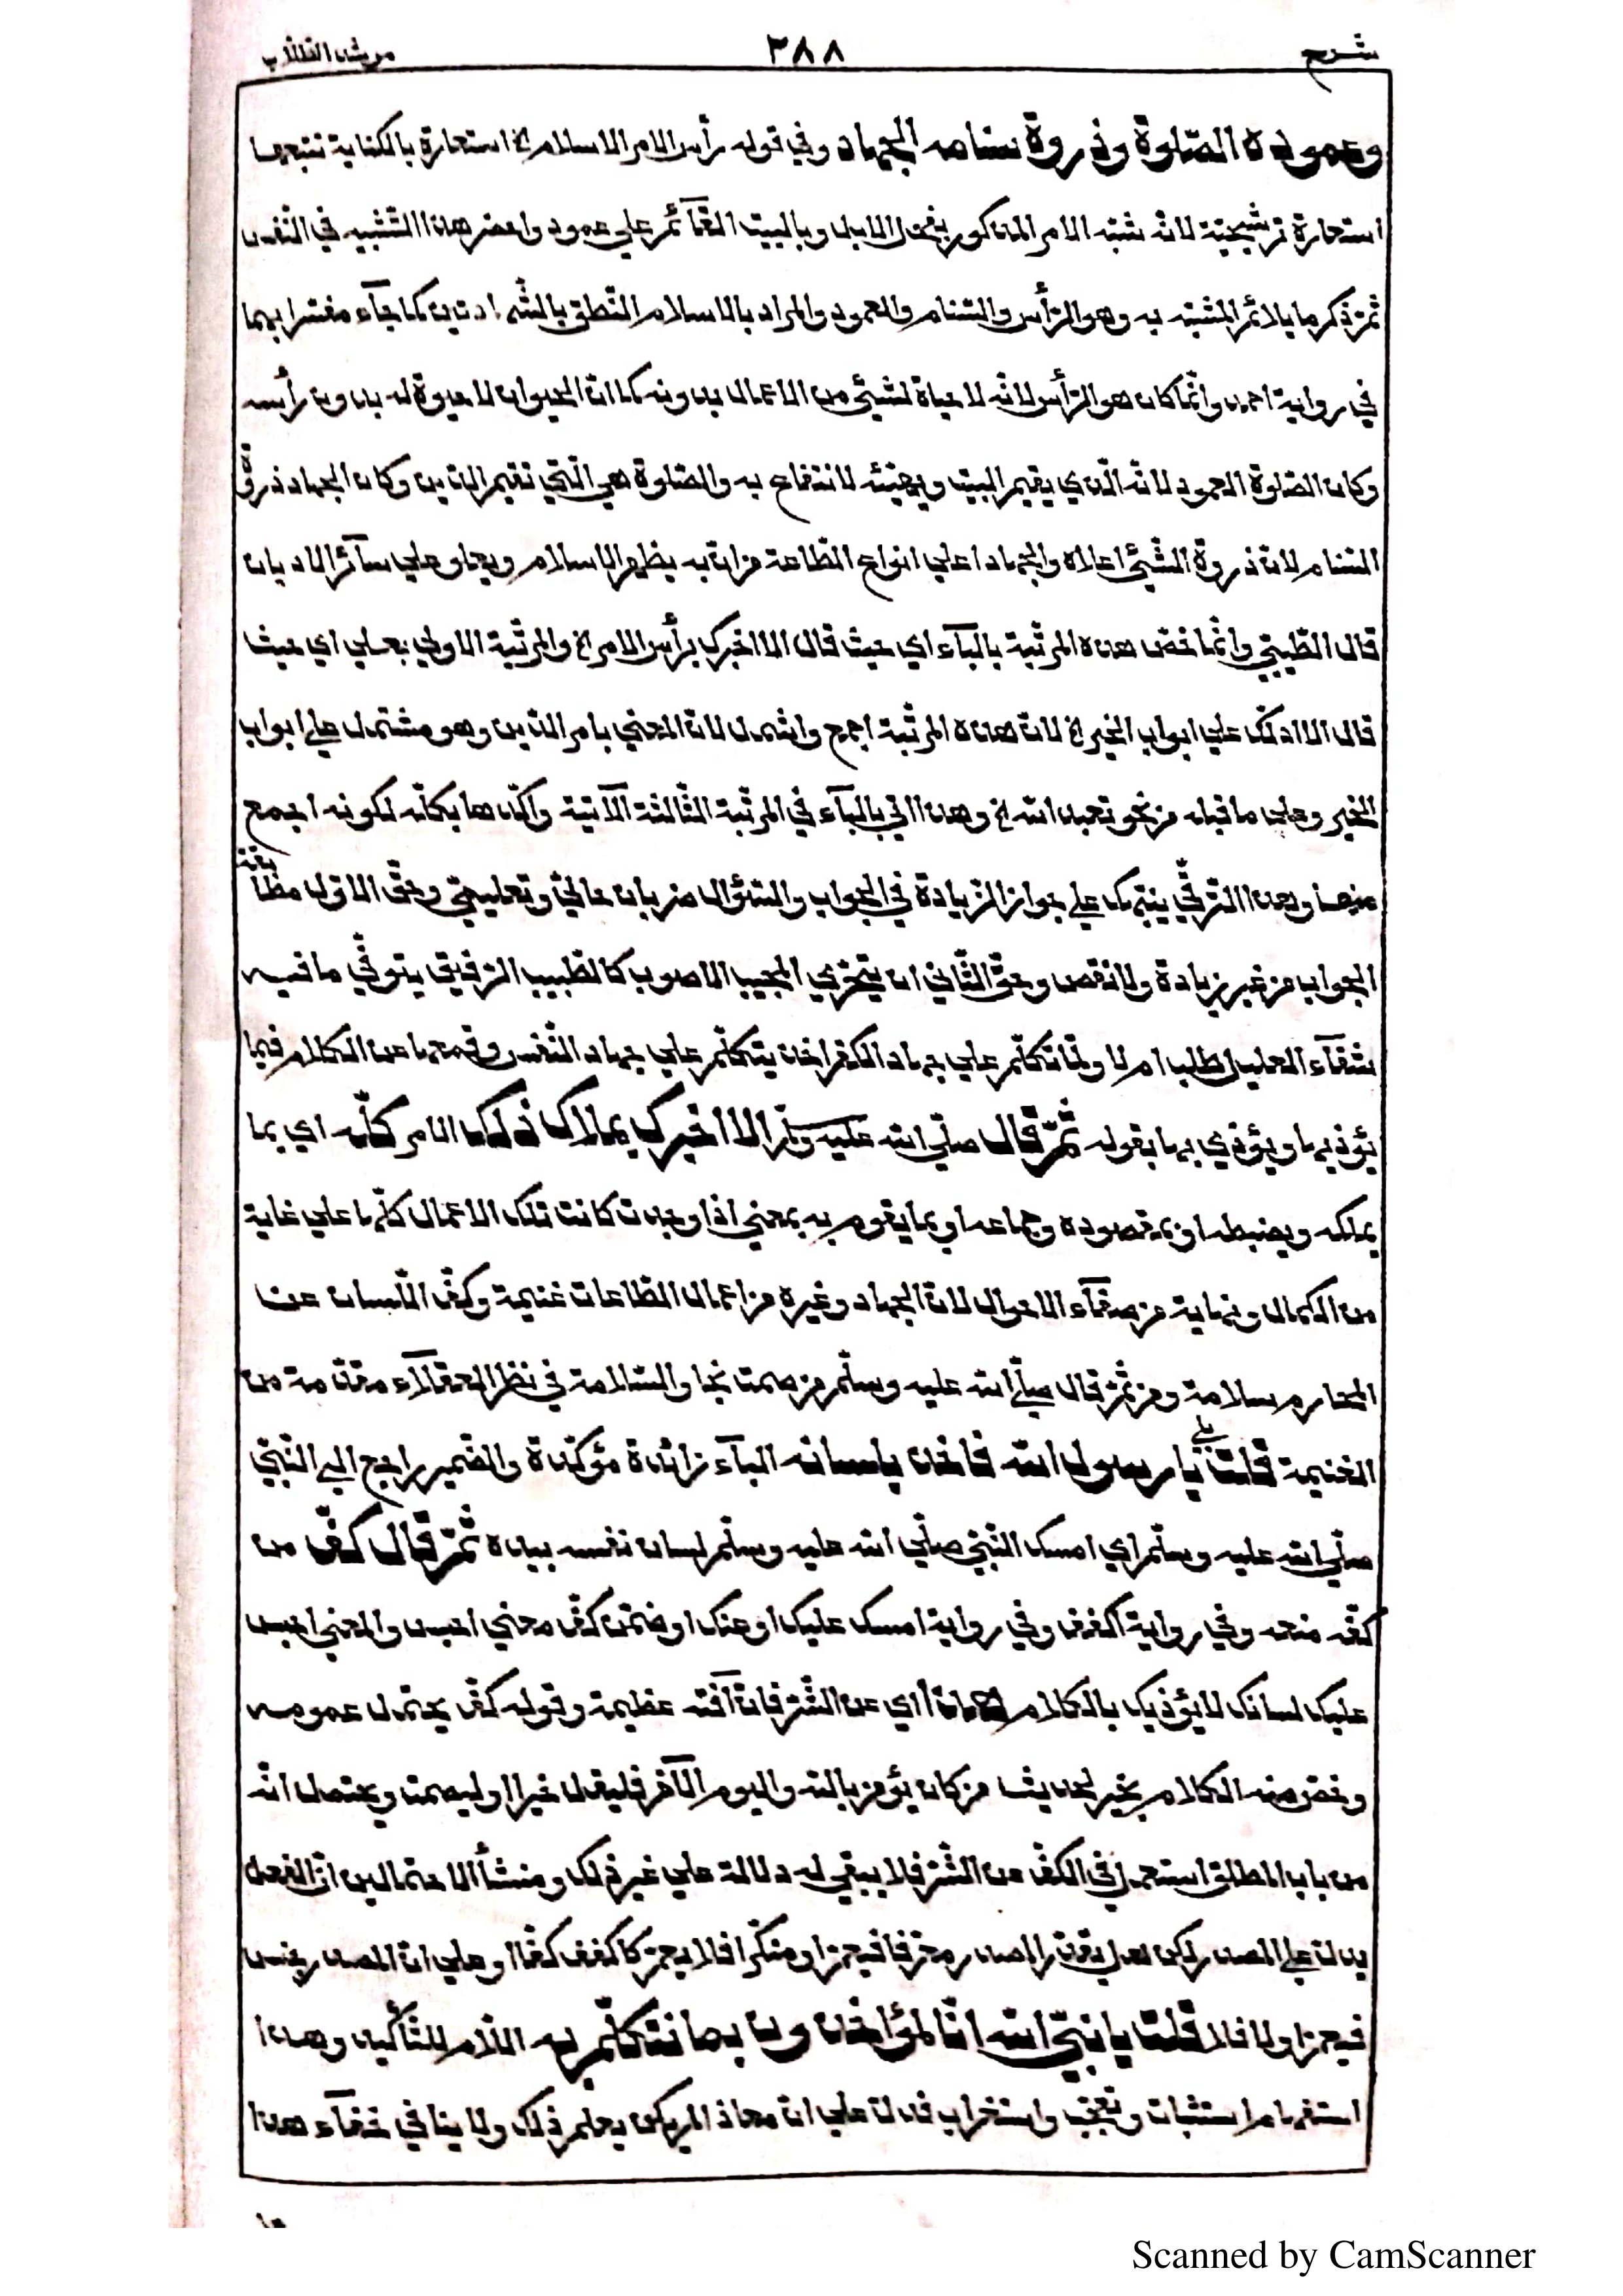 شرح
٣٨٨
مرشد الطلاب
وعموده الصّلوة وذروة سنامه الجهاد وفي قوله رأس الامر الاسلام الخ استعارة بالكناية تتبعها
استعارة ترشيحيّة لانّه شبّه الامر المذكور بفحل الابل وبالبيت القآئم علي عمود واضمر هذا التّشبيه في النّفس
ثمّ ذكر ما يلائم المشبّه به وهو الرّأس والسّنام والعمود والمراد بالاسلام النّطق بالشّهادتين كما جآء مفسّرا بهما
في رواية احمد وانّما كان هو الرّأس لانّه لا حياة لشيئ من الاعمال بدونه كما انّ الحيوان لا حيوة له بدون رأسه
وكان الصّلوة العمود لانّه الّذي يقيم البيت ويهيّئه لانتفاع به والصّلوة هي الّتي تقيم الدّين وكان الجهاد ذروة
السّنام لانّ ذروة الشّيئ اعلاه والجهاد اعلي انواع الطّاعة من انّ به يظهر الاسلام ويعلو علي سآئر الاديان
قال الطّيبيّ وانّما خصّ هذه المرتبة بالبآء اي حيث قال الا اخبرك برأس الامر الخ والمرتبة الاولي بعلي اي حيث
قال الا ادلّك علي ابواب الخير الخ لانّ هذه المرتبة اجمع واشمل لانّ المعني بامر الدّين وهو مشتمل علي ابواب
الخير وعلي ما قبله من نحو تعبد الله الخ وهذا اتي بالبآء في المرتبة الثّالثة الآتية واكّدها بكلّه لكونه اجمع
منهما وبهذا التّرقّي يتنبّه علي جواز الزّيادة في الجواب والسّؤال ضربان حاليّ وتعليميّ وحقّ الاوّل مطابقة
الجواب من غير زيادة ولا نقص وحقّ الثّاني ان يتحرّي المجيب الاصوب كالطّبيب الرّفيق يتوخّي ما فيه
شفآء العليل طلب ام لا ولمّا تكلّم علي جهاد الكفّر اخذ يتكلّم علي جهاد النّفس وقمعها عن الكلام فيما
يؤذيها ويؤذي بها بقوله ثمّ قال صلّي الله عليه وسلّم الا اخبرك بملاك ذلك الامر كلّه اي بما
يملكه ويضبطه او بمقصوده وجماعه او بما يقوم به بمعني اذا وجدت كانت تلك الاعمال كلّها علي غاية
من الكمال ونهاية من صفآء الاحوال لانّ الجهاد وغيره من اعمال الطّاعات غنيمة وكفّ اللّسان عن
المحارم سلامة ومن ثمّ قال صلّي الله عليه وسلّم من صمت نجا والسّلامة في نظر العقلآء مقدّمة من
الغنيمة قلت بلي يا رسول الله فاخذ بلسانه البآء زائدة مؤكّدة والضّمير راجع الي النّبيّ
صلّي الله عليه وسلّم اي امسك النّبيّ صلّي الله عليه وسلّم لسان نفسه بيده ثمّ قال كفّ من
كفّه منعه وفي رواية اكفف وفي رواية امسك عليك او عنك او ضمّن كفّ معني احبس والمعني احبس
عليك لسانك لا يؤذيك بالكلام هذا اي عن الشّرّ فانّ آفته عظيمة وقوله كفّ يحتمل عمومه
وخصّ منه الكلام بخير لحديث من كان يؤمن بالله واليوم الآخر فليقل خيرا او ليصمت ويحتمل انّه
من باب المطلق استعمل في الكفّ عن الشّرّ فلا يبقي له دلالة علي غير ذلك ومنشأ الاحتمالين انّ الفعل
يدلّ علي المصدر لكن هل يقدّر المصدر معرّفا فيعمّ او منكّرا فلا يعمّ كاكفف كفّا او علي انّ المصدر جنس
فيعمّ او لا فلا قلت يا نبيّ الله انّا لمؤاخذون بما نتكلّم به اللّام للتّأكيد وهذا
استفهام استثبات وتعجّب واستغراب فدلّ علي انّ معاذ لم يكن يعلم ذلك ولا ينافي خفآء هذا
Scanned by CamScanner